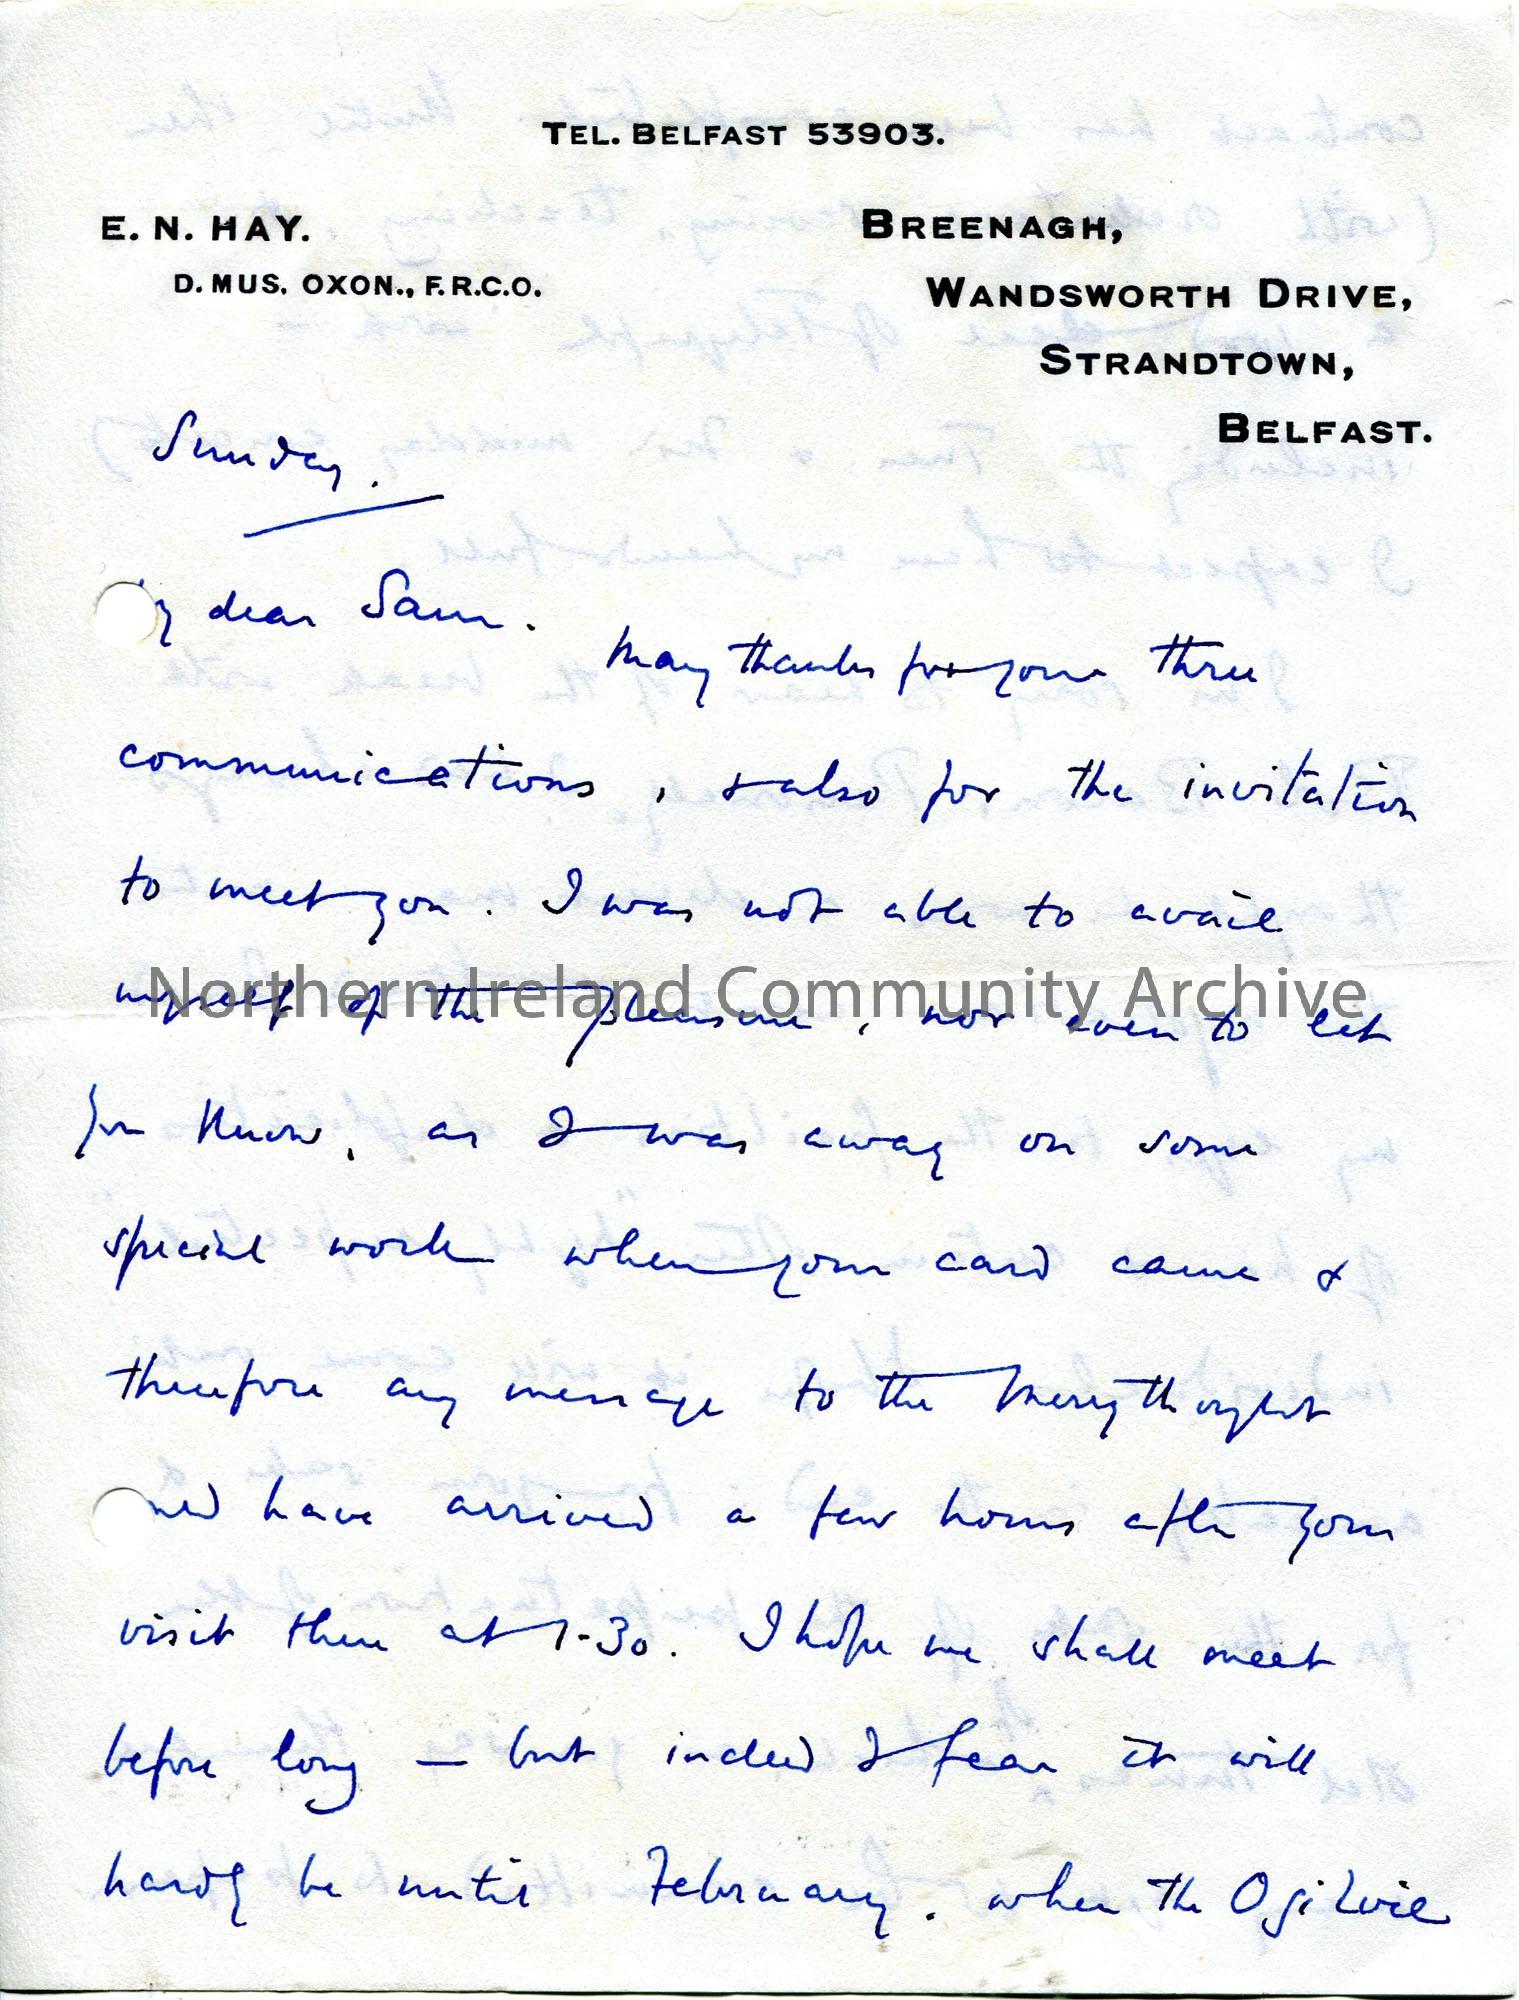 TEL. BELFAST 53903.
E. N. HAY.
D. MUS. OXON., F.R.C.O.
BREENAGH,
WANDSWORTH DRIVE,
STRANDTOWN,
BELFAST.
Sunday.
y dear Sam.
Many thanks for your three
communications, & also for the invitation
to meet you. I was not able to avail
myself of the pleasure, nor even to let
you know, as I was away on some
special work when your card came &
therefore any message to the Merrythought
have arrived a few hours after your
visit there at 1-30. I hope we shall meet
before long — but indeed I fear it will
hardly be until February, when the Ogilvie
Northern Ireland Community Archive